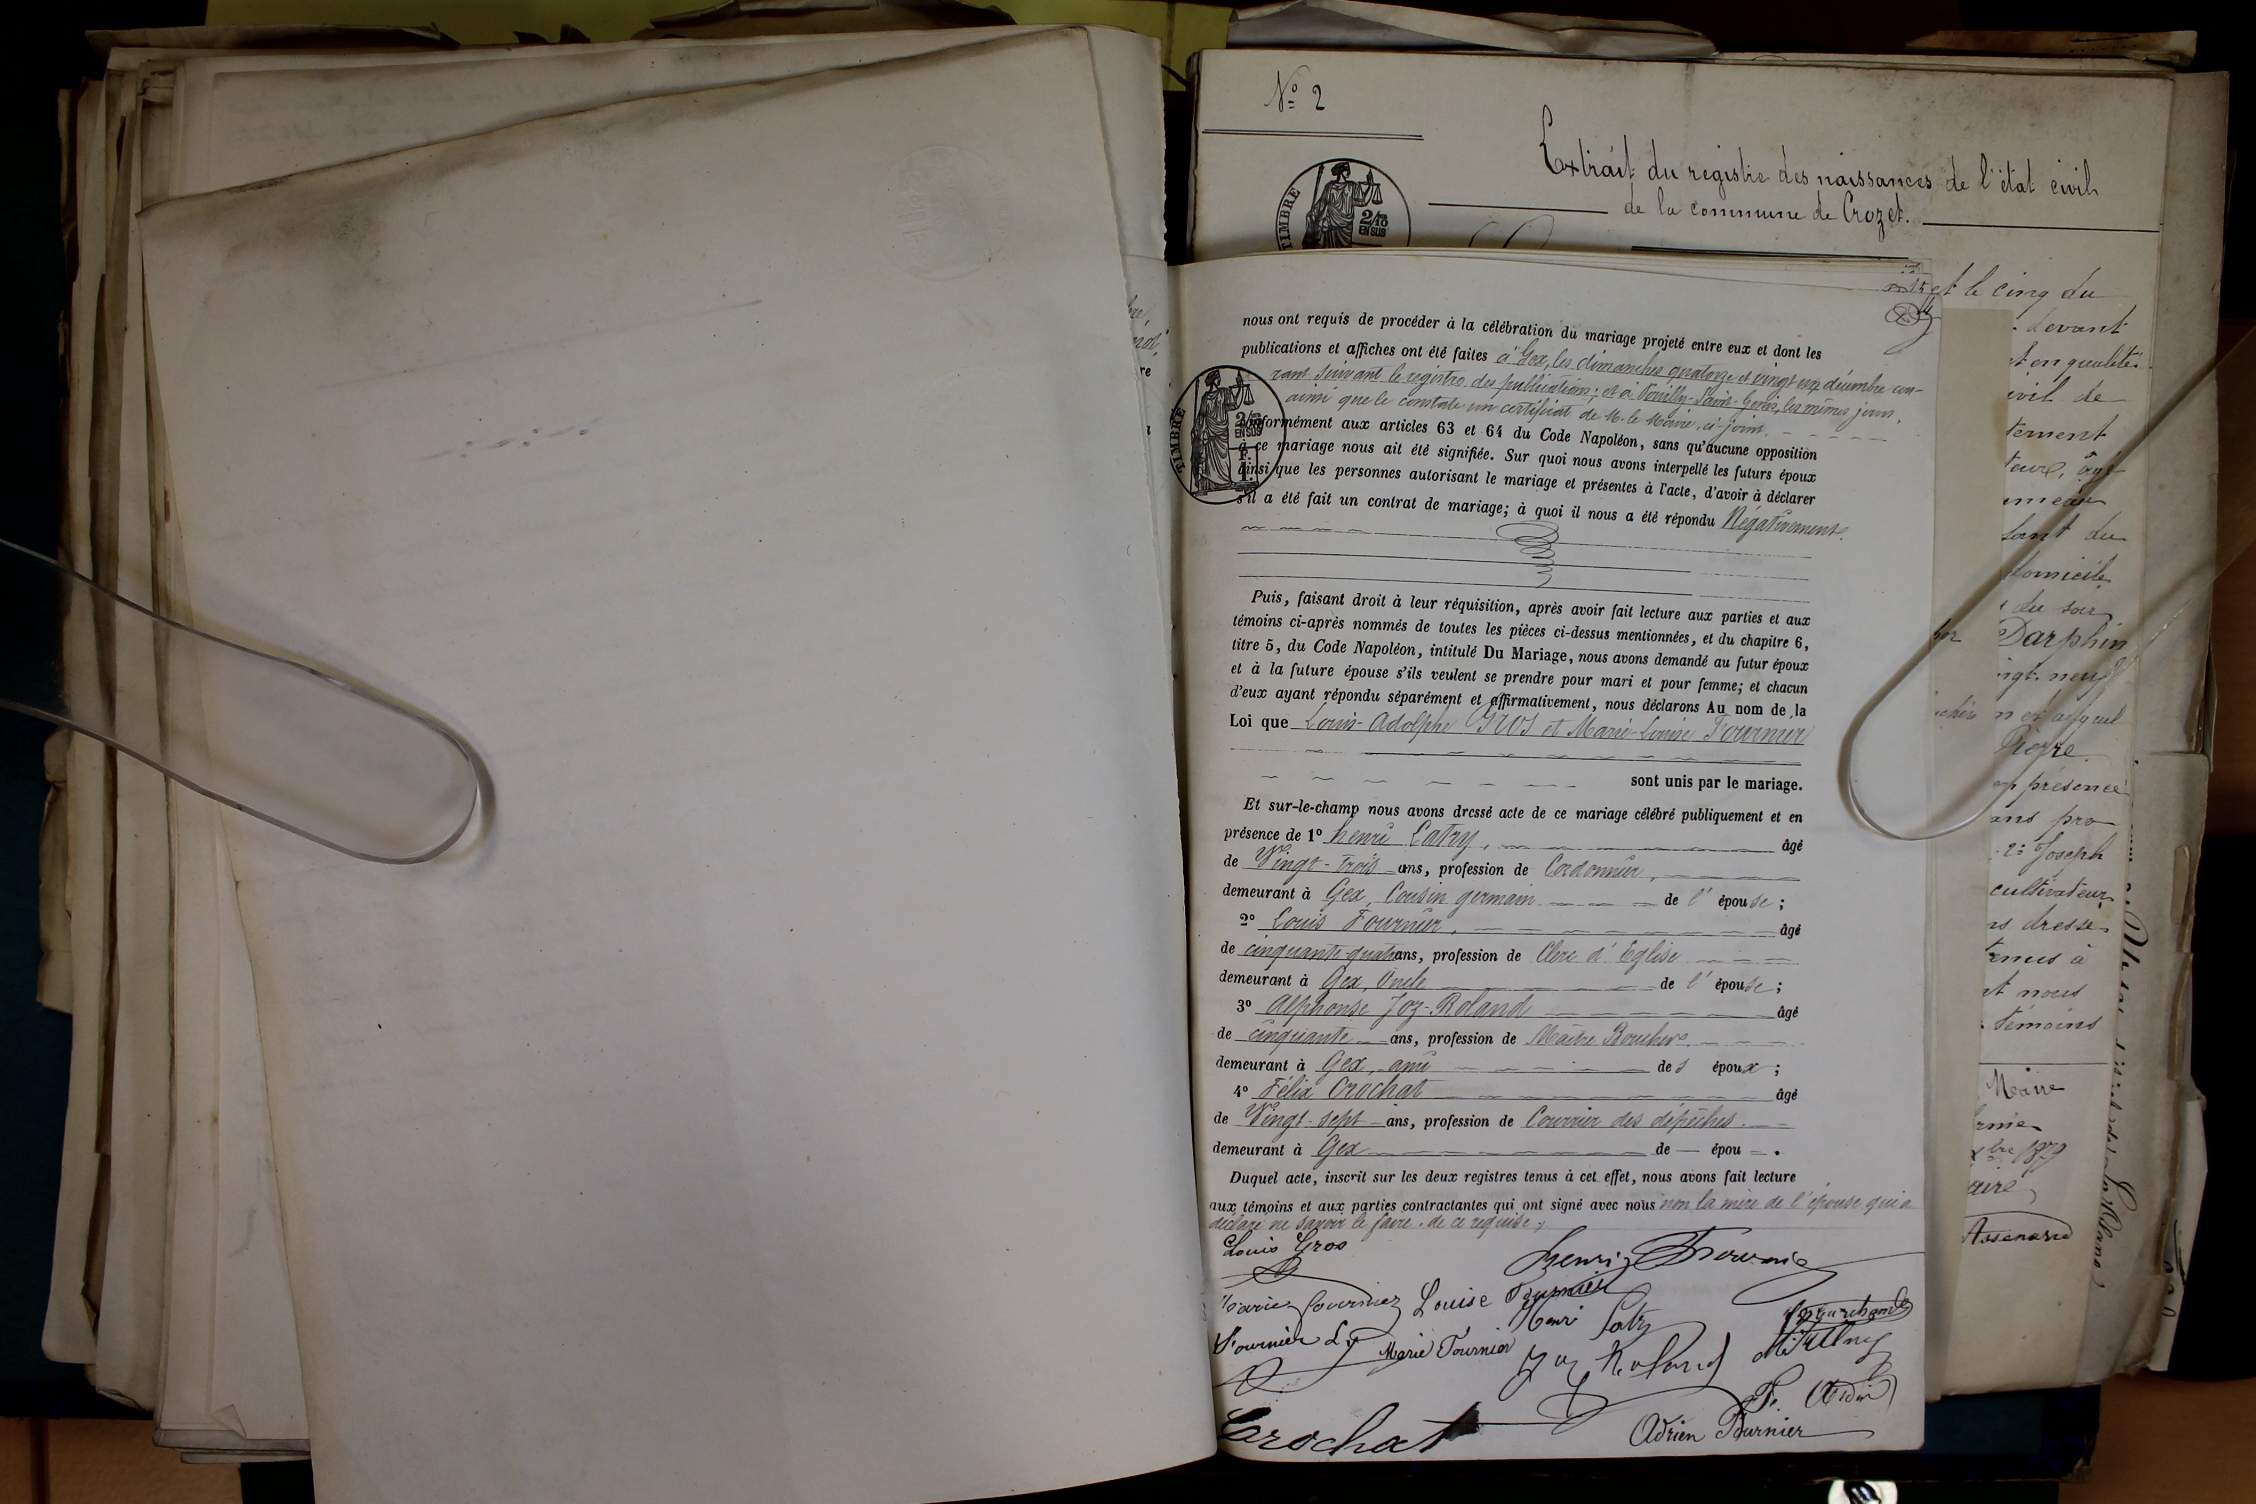 Nº 2
Extrait du registre des naissances de l'état civil
de la commune de Crozet.
TIMBRE
2/10
EN SUS
et le cinq du
devant
et en qualité
civil de
tement
teur, âgé
hameau
sant du
domicile
du soir
Darphin
vingt-neuf
et auquel
Pierre
en présence
ans pro
2º Joseph
cultivateur
ns dressé
tenus à
et nous
témoins
Maire
bre 1879
aire
nous ont requis de procéder à la célébration du mariage projeté entre eux et dont les
publications et affiches ont été faites à Gex, les dimanches quatorze et vingt un décembre cou-
rant suivant le registre des publications; et à Pouilly-Saint-Genis, les mêmes jours,
ainsi que le constate un certificat de M. le Maire, ci-joint.
conformément aux articles 63 et 64 du Code Napoléon, sans qu'aucune opposition
à ce mariage nous ait été signifiée. Sur quoi nous avons interpellé les futurs époux
ainsi que les personnes autorisant le mariage et présentes à l'acte, d'avoir à déclarer
s'il a été fait un contrat de mariage; à quoi il nous a été répondu Négativement.
TIMBRE
2/10
EN SUS
Puis, faisant droit à leur réquisition, après avoir fait lecture aux parties et aux
témoins ci-après nommés de toutes les pièces ci-dessus mentionnées, et du chapitre 6,
titre 5, du Code Napoléon, intitulé Du Mariage, nous avons demandé au futur époux
et à la future épouse s'ils veulent se prendre pour mari et pour femme; et chacun
d'eux ayant répondu séparément et affirmativement, nous déclarons Au nom de la
Loi que Louis-Adolphe Gros et Marie-Louise Fournier
sont unis par le mariage.
Et sur-le-champ nous avons dressé acte de ce mariage célébré publiquement et en
présence de 1º henri Catry, âgé
de Vingt-trois ans, profession de Cordonnier,
demeurant à Gex, Cousin germain de l'épouse;
2º Louis Fournier, âgé
de cinquante-quatre ans, profession de Clerc d'Eglise
demeurant à Gex, Oncle de l'épouse;
3º Alphonse Joz-Roland âgé
de cinquante ans, profession de Maître Boucher
demeurant à Gex, ami des époux;
4º Félix Crochat âgé
de Vingt-sept ans, profession de Courrier des dépêches.
demeurant à Gex de — épou — .
Duquel acte, inscrit sur les deux registres tenus à cet effet, nous avons fait lecture
aux témoins et aux parties contractantes qui ont signé avec nous non la mère de l'épouse qui a
déclaré ne savoir le faire. de ce requise.
Louis Gros
Henri
Marie Fournier Louise Fournier
Henri Catry
Fournier Ls Marie Fournier
Joz Roland
Crochat
Adrien Burnier